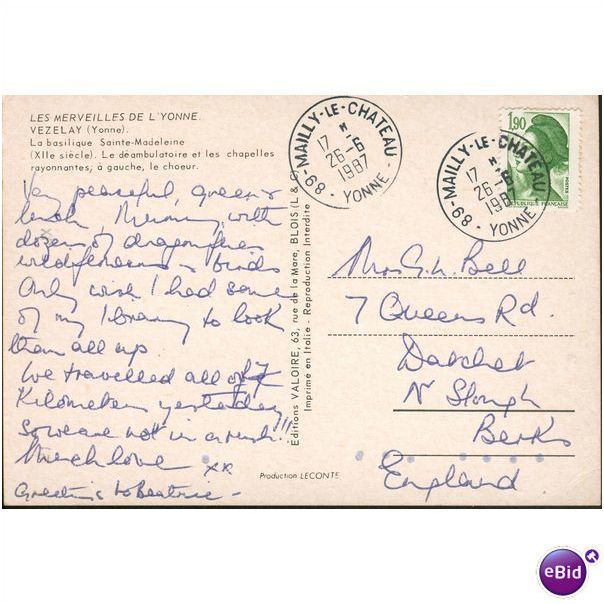 LES MERVEILLES DE L'YONNE.
VEZELAY (Yonne).
La basilique Sainte-Madeleine
(XIIe siècle). Le déambulatoire et les chapelles
rayonnantes; à gauche, le choeur.
Very peaceful, green &
lush with
dozens of dragonflies
wildflowers & birds
Only wish I had some
of my library to look
them all up
We travelled all of 7
Kilometers yesterday
so we are not in a rush!!
Much love xx
Greetings to Beatrice -
Editions VALOIRE, 63, rue de la Mare, BLOIS (L & C)
Imprimé en Italie - Reproduction Interdite
Production LECONTE
89-MAILLY-LE-CHATEAU
17 H
26-6
1987
YONNE
89-MAILLY-LE-CHATEAU
17 H
26-6
198
YONNE
1,90
POSTES
REPUBLIQUE FRANÇAISE
Mrs G. W. Bell
7 Queens Rd.
Datchet
Nr Slough
Berks
England
eBid